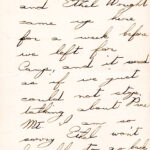 and Ethel Wought
came up here
for a week before
we left for
Camp, and it seemed
as if we just
could not stop
talking about Pine
Mt. I am so
sorry Ruth won't